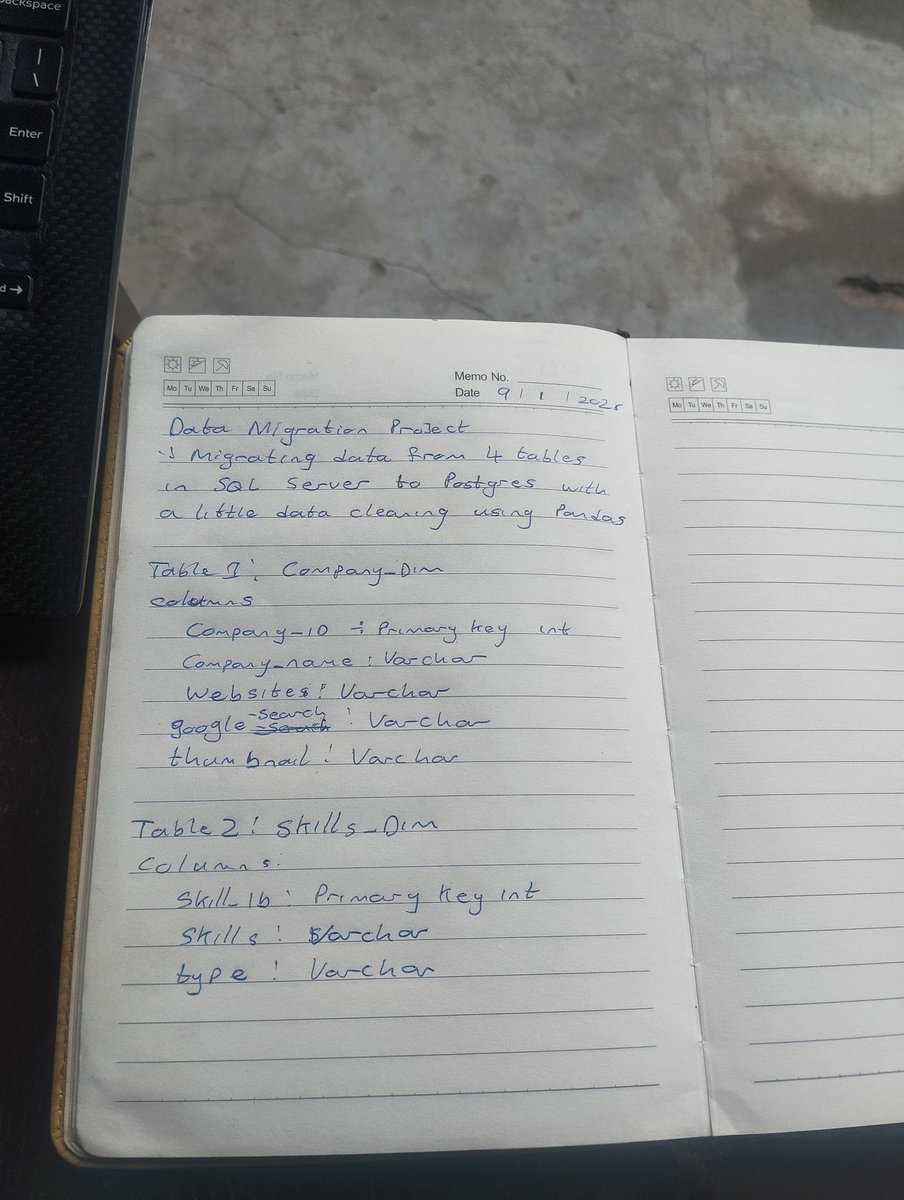 ackspace
|
\
Enter
Shift
d →
Mo Tu We Th Fr Sa Su
Memo No.
Date 9 / 1 / 2026
Data Migration Project
Migrating data from 4 tables
in SQL Server to Postgres with
a little data cleaning using Pandas
Table 1: Company_Dim
columns
Company_ID : Primary key int
Company_name : Varchar
Websites : Varchar
google_search : Varchar
thumbnail : Varchar
Table 2: Skills_Dim
Columns:
Skill_ID : Primary Key int
Skills : Varchar
type : Varchar
Mo Tu We Th Fr Sa Su